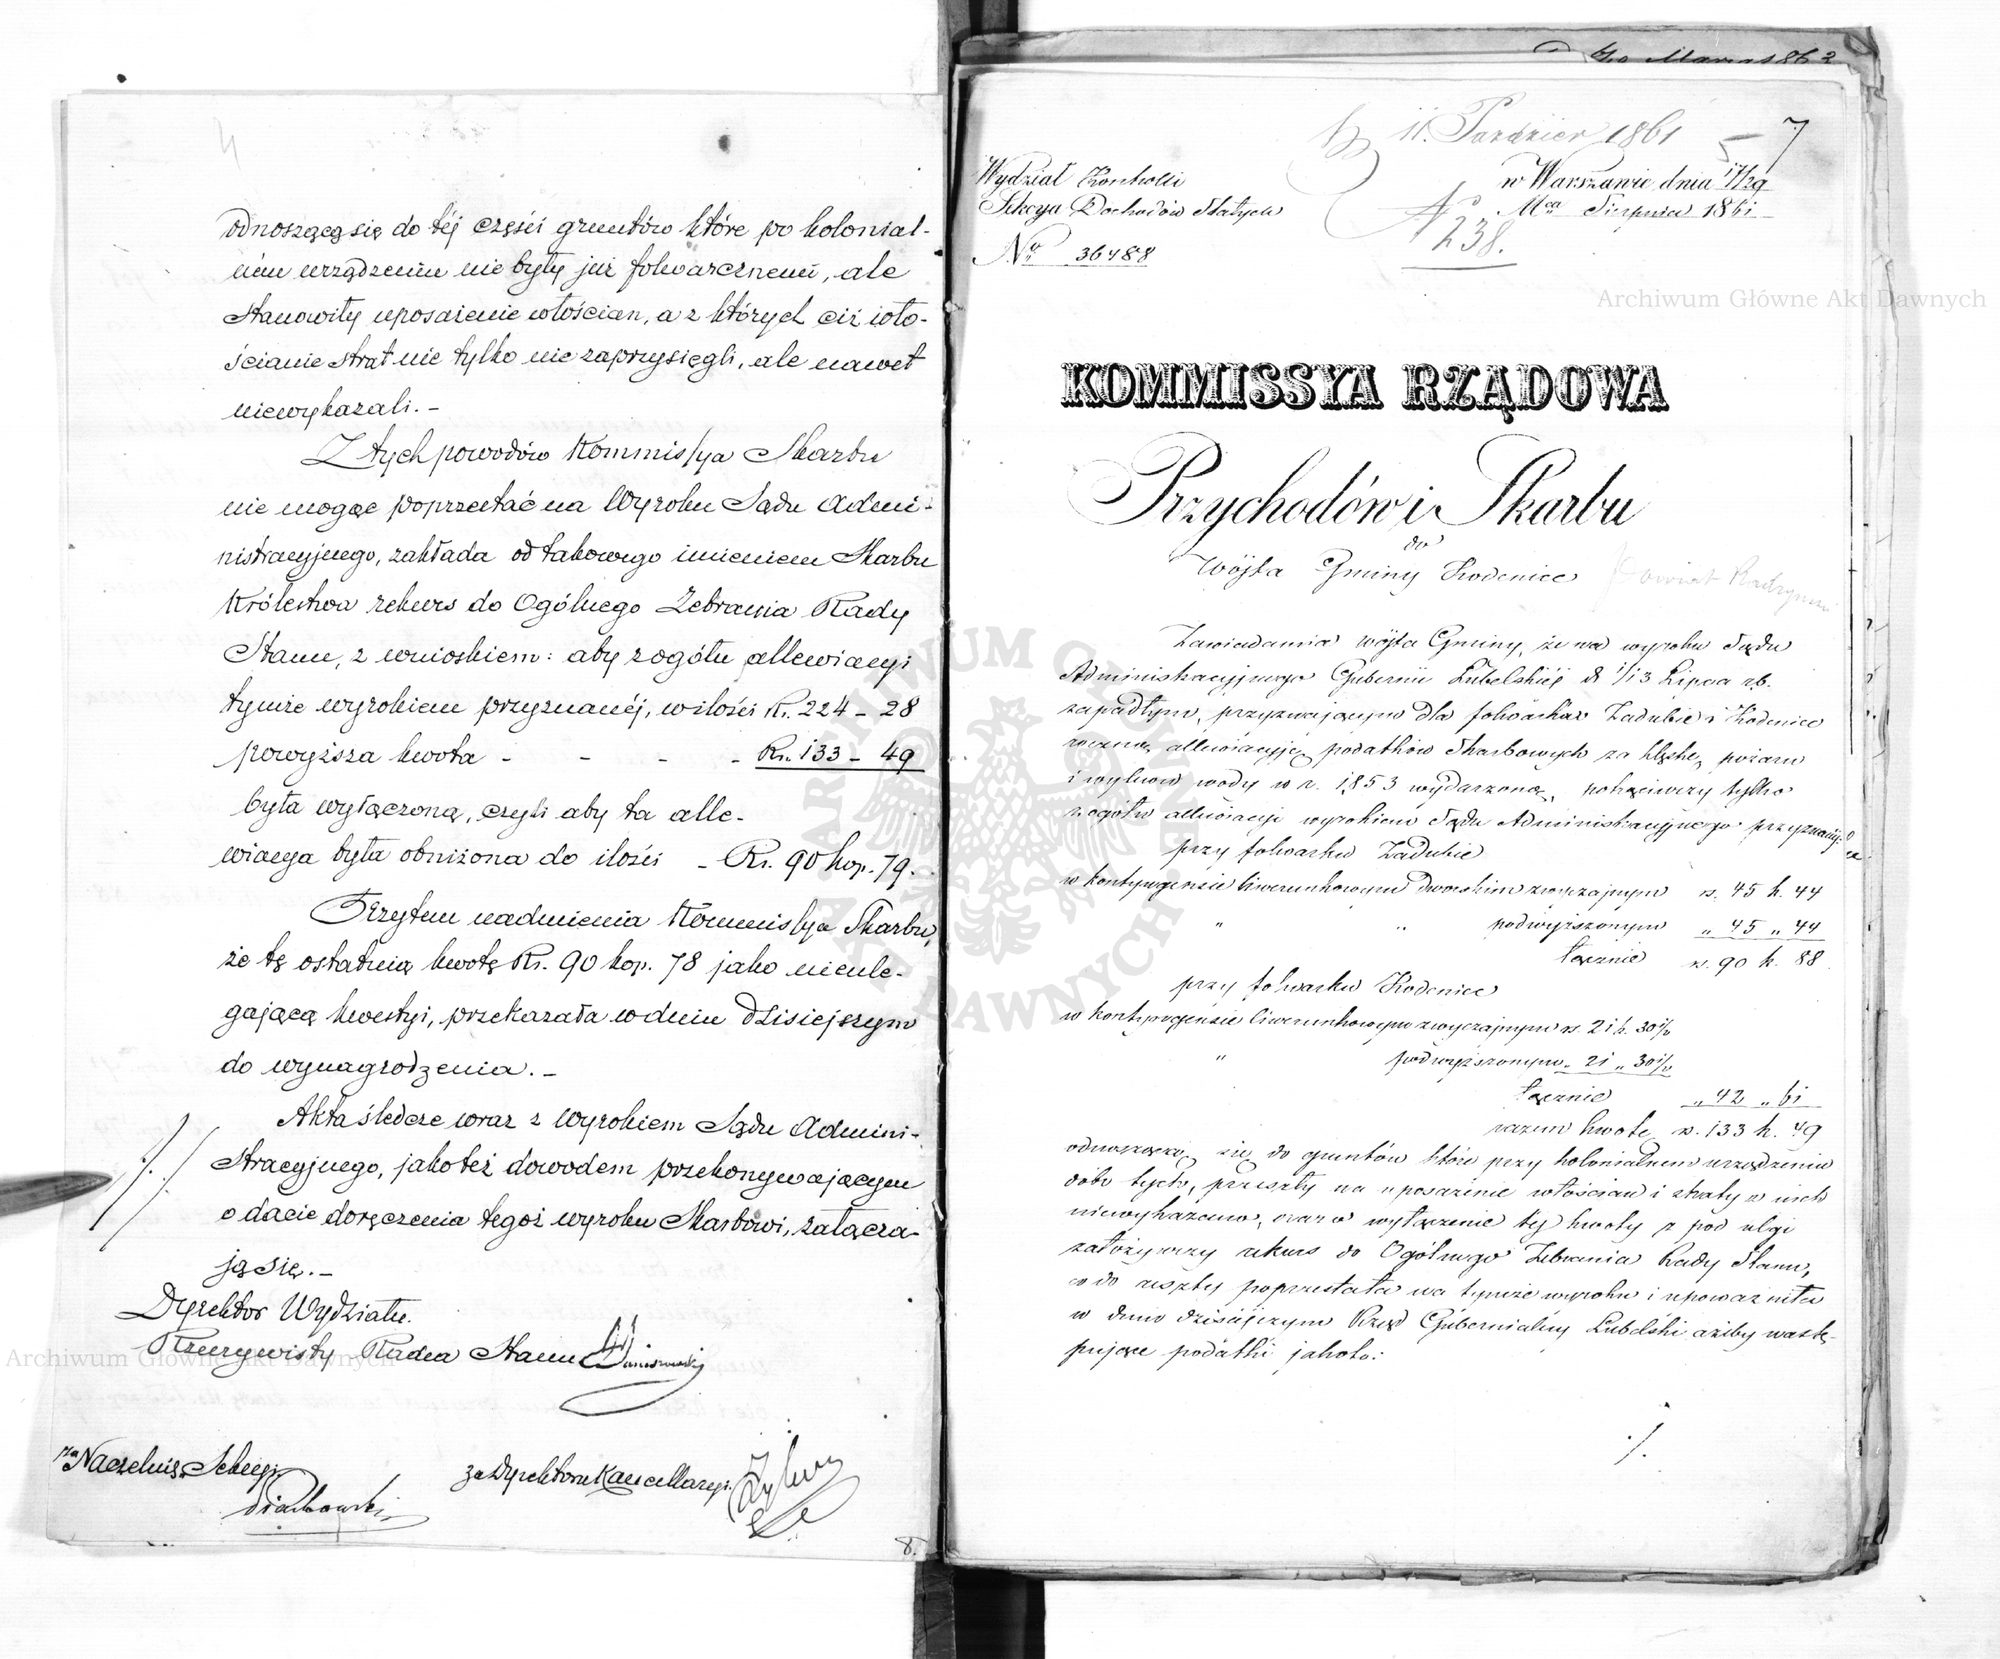 odnoszącą się do téj części gruntów które po kolonial-
ném urządzeniu nie były już folwarcznemi, ale
stanowiły uposażenie włościan, a z których ciż wło-
ścianie strat nie tylko nie zaprzysięgli, ale nawet
niewykazali. –
Z tych powodów Kommissya Skarbu
nie mogąc poprzestać na Wyroku Sądu Admi-
nistracyjnego, zakłada od takowego imieniem Skarbu
Królestwa rekurs do Ogólnego Zebrania Rady
Stanu, z wnioskiem: aby z ogółu allewiacyi
tymże wyrokiem przyznanéj, w ilości Rs. 224 – 28
powyższa kwota - - - - Rs. 133 – 49
była wyłączoną, czyli aby ta alle-
wiacya była obniżona do ilości – Rs. 90 kop. 79.
Przytem nadmienia Kommissya Skarbu,
że tę ostatnią kwotę Rs. 90 kop. 78 jako nieule-
gającą kwestyi, przekazała w dniu dzisiejszym
do wynagrodzenia. –
Akta śledcze wraz z Wyrokiem Sądu Admini-
stracyjnego, jakoteż dowodem przekonywającym
o dacie doręczenia tegoż wyroku Skarbowi, załącza-
ją się. –
Dyrektor Wydziału.
Rzeczywisty Radca Stanu
za Naczelnik Sekcyi
za Dyrektora Kancellaryi
8.
11. Pazdzier 1861
7
Wydział Kontrolli
Sekcya Dochodów Stałych
No 36488
w Warszawie dnia 17/29
Mca Sierpnia 1861
No 238.
Archiwum Główne Akt Dawnych
KOMMISSYA RZĄDOWA
Przychodów i Skarbu
do
Wójta Gminy Kodeniec
Zawiadamia wójta Gminy, że na wyroku Sądu
Administracyjnego Gubernii Lubelskiéj d 1/13 Lipca r.b.
zapadłym, przyznającym dla folwarków Zadubie i Kodeniec
roczną allewiacyję podatków Skarbowych za klęskę pożaru
i wylewu wody w r. 1853 wydarzoną,
z ogółu allewiacyi wyrokiem Sądu Administracyjnego przyznanéj
przy folwarku Zadubie
w kontyngensie liwerunkowym dworskim zwyczajnym rs. 45 k. 44
" " podwyższonym " 45 " 44
łącznie rs. 90 k. 88
przy folwarku Kodeniec
w kontyngensie liwerunkowym zwyczajnym rs. 21 k. 30½
" podwyższonym " 21 " 30½
łącznie " 42 " 61
razem kwotę rs. 133 k. 49
odnoszącą się do gruntów które przy kolonialnem urządzeniu
dóbr tych, przeszły na uposażenie włościan i straty w nich
niewykazano, oraz o wyłączenie téj kwoty z pod ulgi
założywszy rekurs do Ogólnego Zebrania Rady Stanu,
co do reszty poprzestała na tymże wyroku i upoważniła
w dniu dzisiejszym Rząd Gubernialny Lubelski ażeby nastę-
pujące podatki jakoto:
./.
ARCHIWUM GŁÓWNE AKT DAWNYCH
Archiwum Główne Akt Dawnych